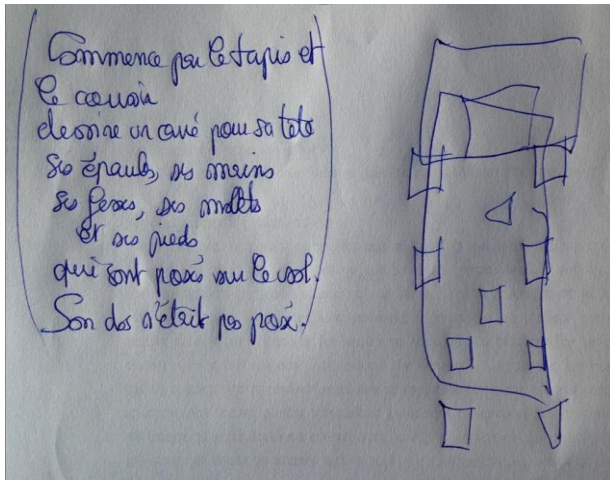 Commence par le tapis et
le coussin
dessine un carré pour sa tête
ses épaules, ses mains
ses fesses, ses mollets
et ses pieds
qui sont posés sur le sol.
Son dos n'était pas posé.